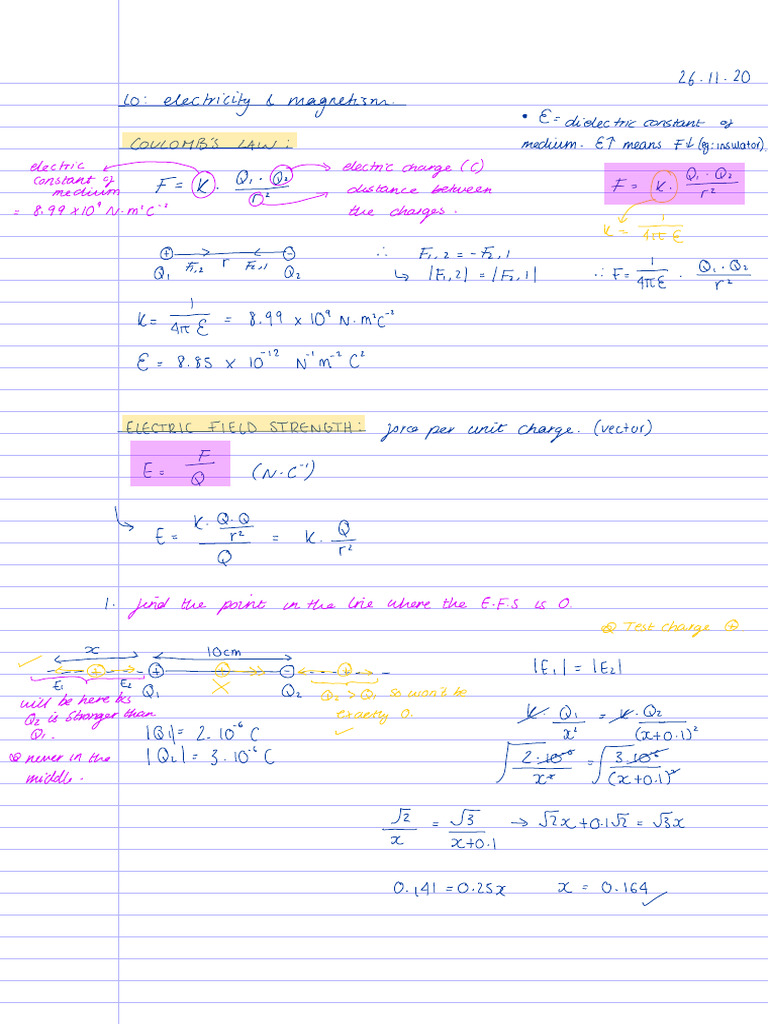 26.11.20
LO: electricity & magnetism.
• Ɛ = dielectric constant of
medium. Ɛ↑ means F↓ (eg: insulator)
COULOMB'S LAW:
electric
constant of
medium
= 8.99 x10⁹ N·m²C⁻²
F = K · Q₁ · Q₂ / r²
electric charge (C)
distance between
the charges.
F = K · Q₁ · Q₂ / r²
K = 1 / 4π Ɛ
Q₁ F₁,₂ r F₂,₁ Q₂
∴ F₁,₂ = -F₂,₁
↳ |F₁,₂| = |F₂,₁|
∴ F = 1 / 4πƐ · Q₁ · Q₂ / r²
K = 1 / 4π Ɛ = 8.99 x 10⁹ N·m²C⁻²
Ɛ = 8.85 x 10⁻¹² N⁻¹ m⁻² C²
ELECTRIC FIELD STRENGTH: force per unit charge. (vector)
E = F / Q (N·C⁻¹)
↳ E = K · Q·Q / r² / Q = K · Q / r²
1. find the point in the line where the E.F.S is 0.
Test charge ⊕
✓ x 10cm
E₁ E₂ Q₁ Q₂
will be here bcs
Q₂ is stronger than
Q₁.
never in the
middle.
Q₂ > Q₁ so won't be
exactly 0.
✓
|Q₁| = 2.10⁻⁶ C
|Q₂| = 3.10⁻⁶ C
|E₁| = |E₂|
K · Q₁ / x² = K · Q₂ / (x+0.1)²
√ 2·10⁻⁶ / x² = √ 3·10⁻⁶ / (x+0.1)²
√2 / x = √3 / x+0.1 → √2x + 0.1√2 = √3x
0.141 = 0.25x x = 0.164 ✓